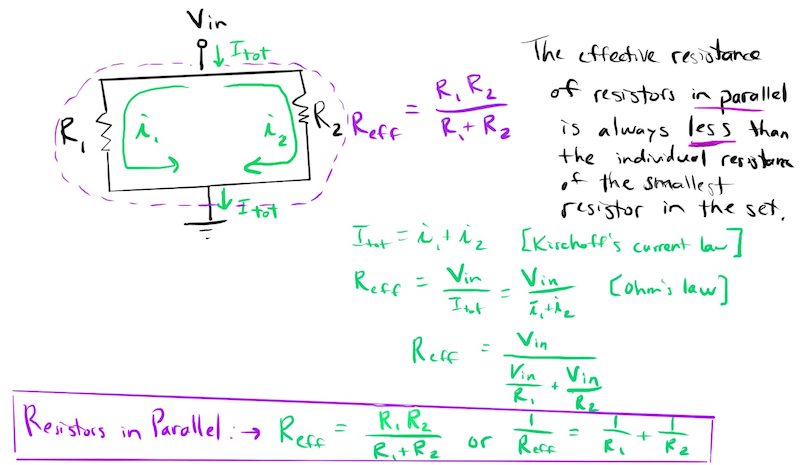 Vin
Itot
R1
i1
i2
R2
Itot
Reff = R1 R2 / R1 + R2
The effective resistance
of resistors in parallel
is always less than
the individual resistance
of the smallest
resistor in the set.
Itot = i1 + i2 [Kirchoff's current law]
Reff = Vin / Itot = Vin / i1+i2 [Ohm's law]
Reff = Vin / (Vin / R1 + Vin / R2)
Resistors in Parallel: → Reff = R1 R2 / R1 + R2 or 1 / Reff = 1 / R1 + 1 / R2